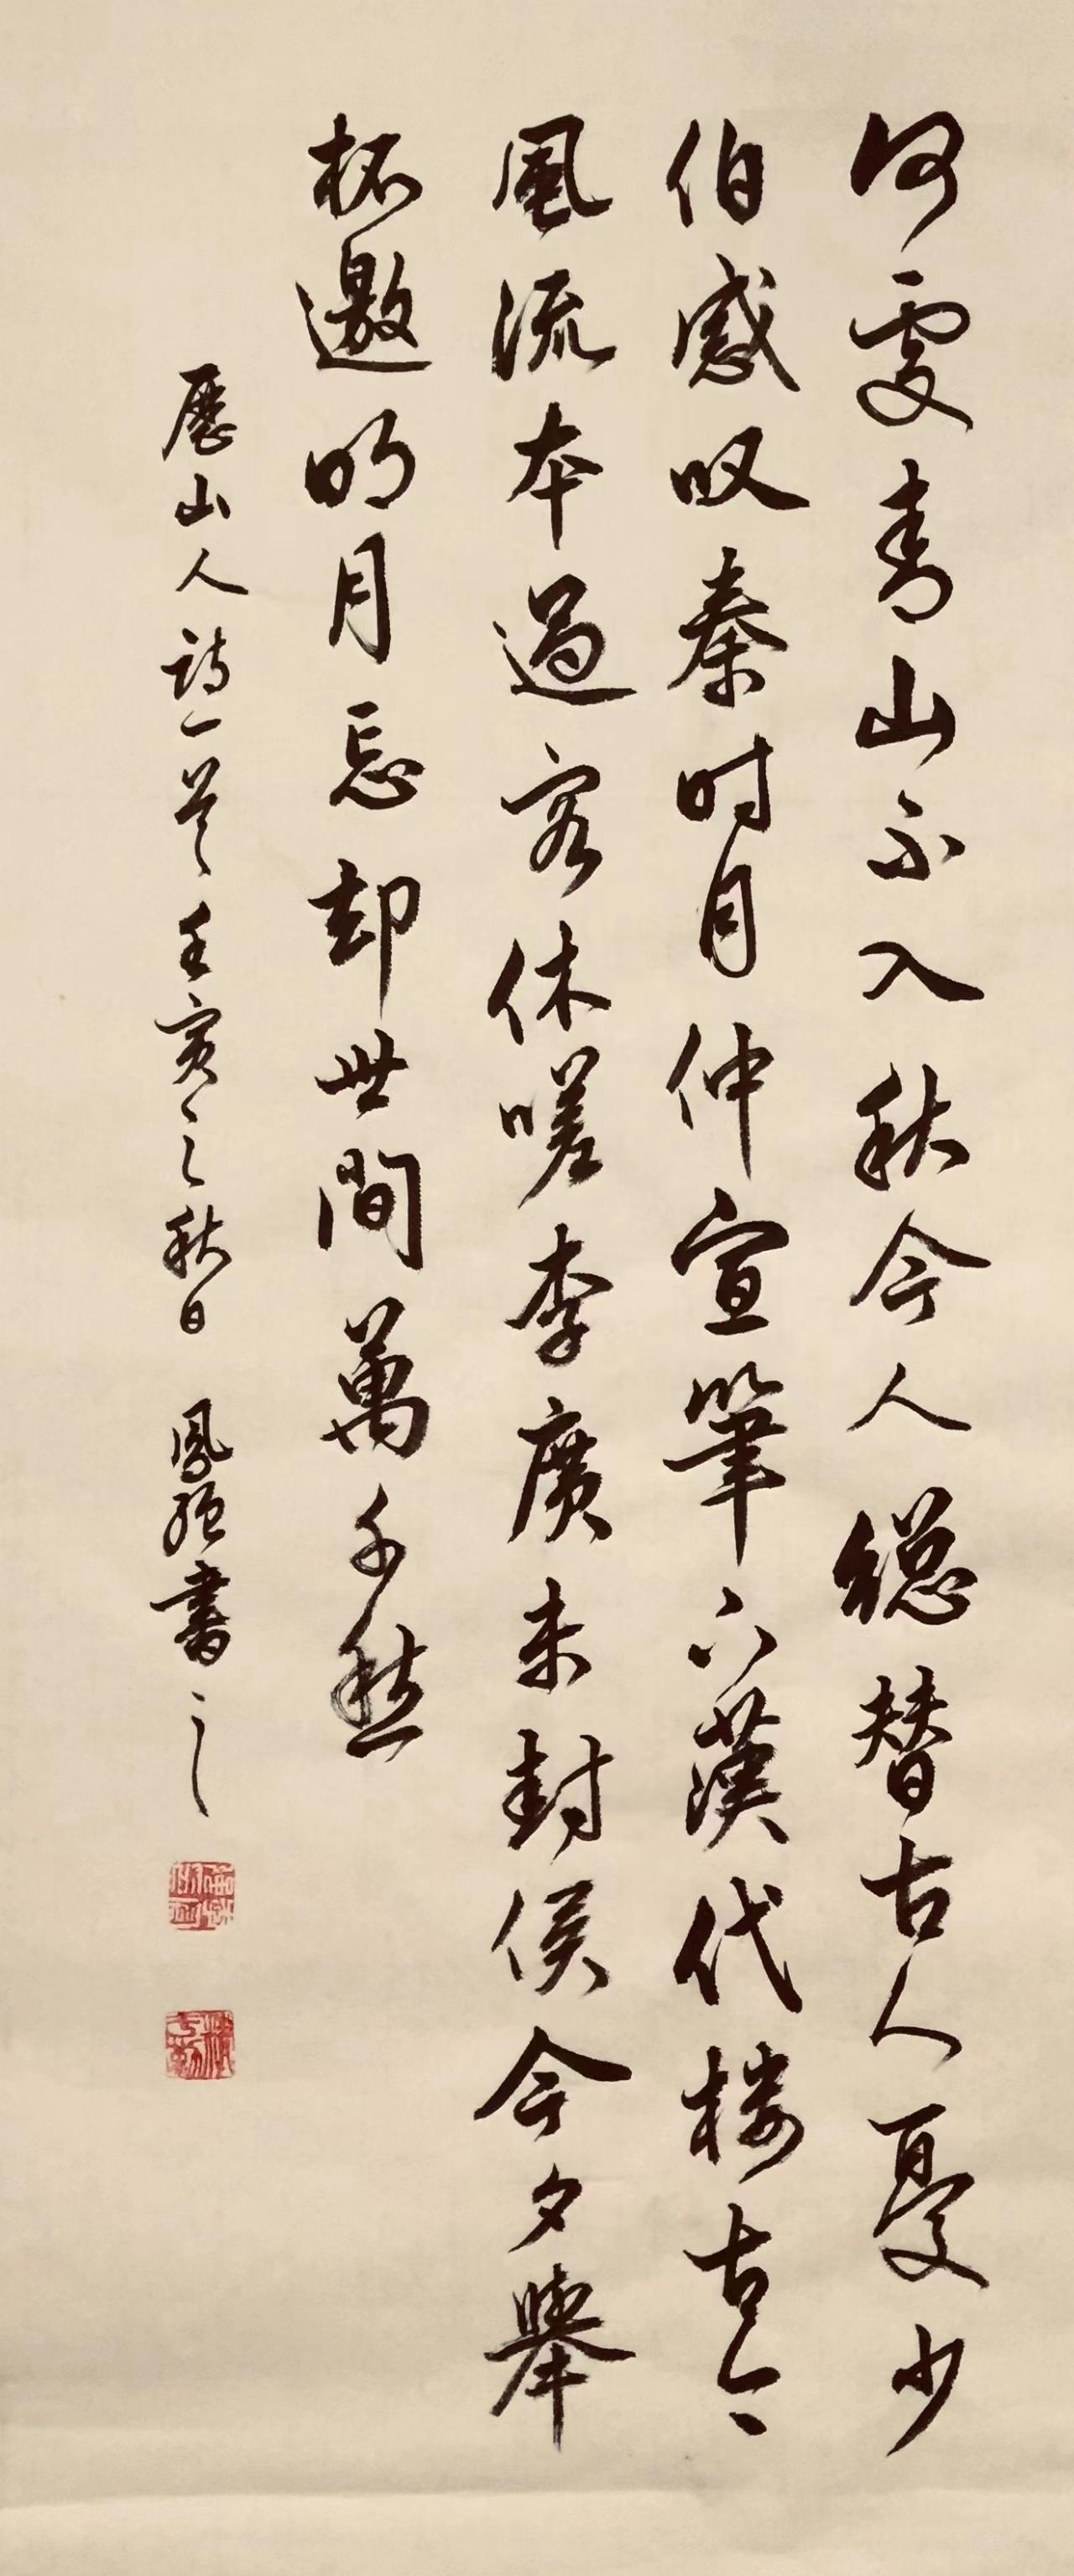 何處青山不入秋今人總替古人憂少
伯感叹秦時月仲宣筆下漢代樓古今
風流本過客休嗟李廣未封侯今夕舉
杯邀明月忘却世間萬千愁
歷山人詩一首壬寅之秋日 鳳強書之